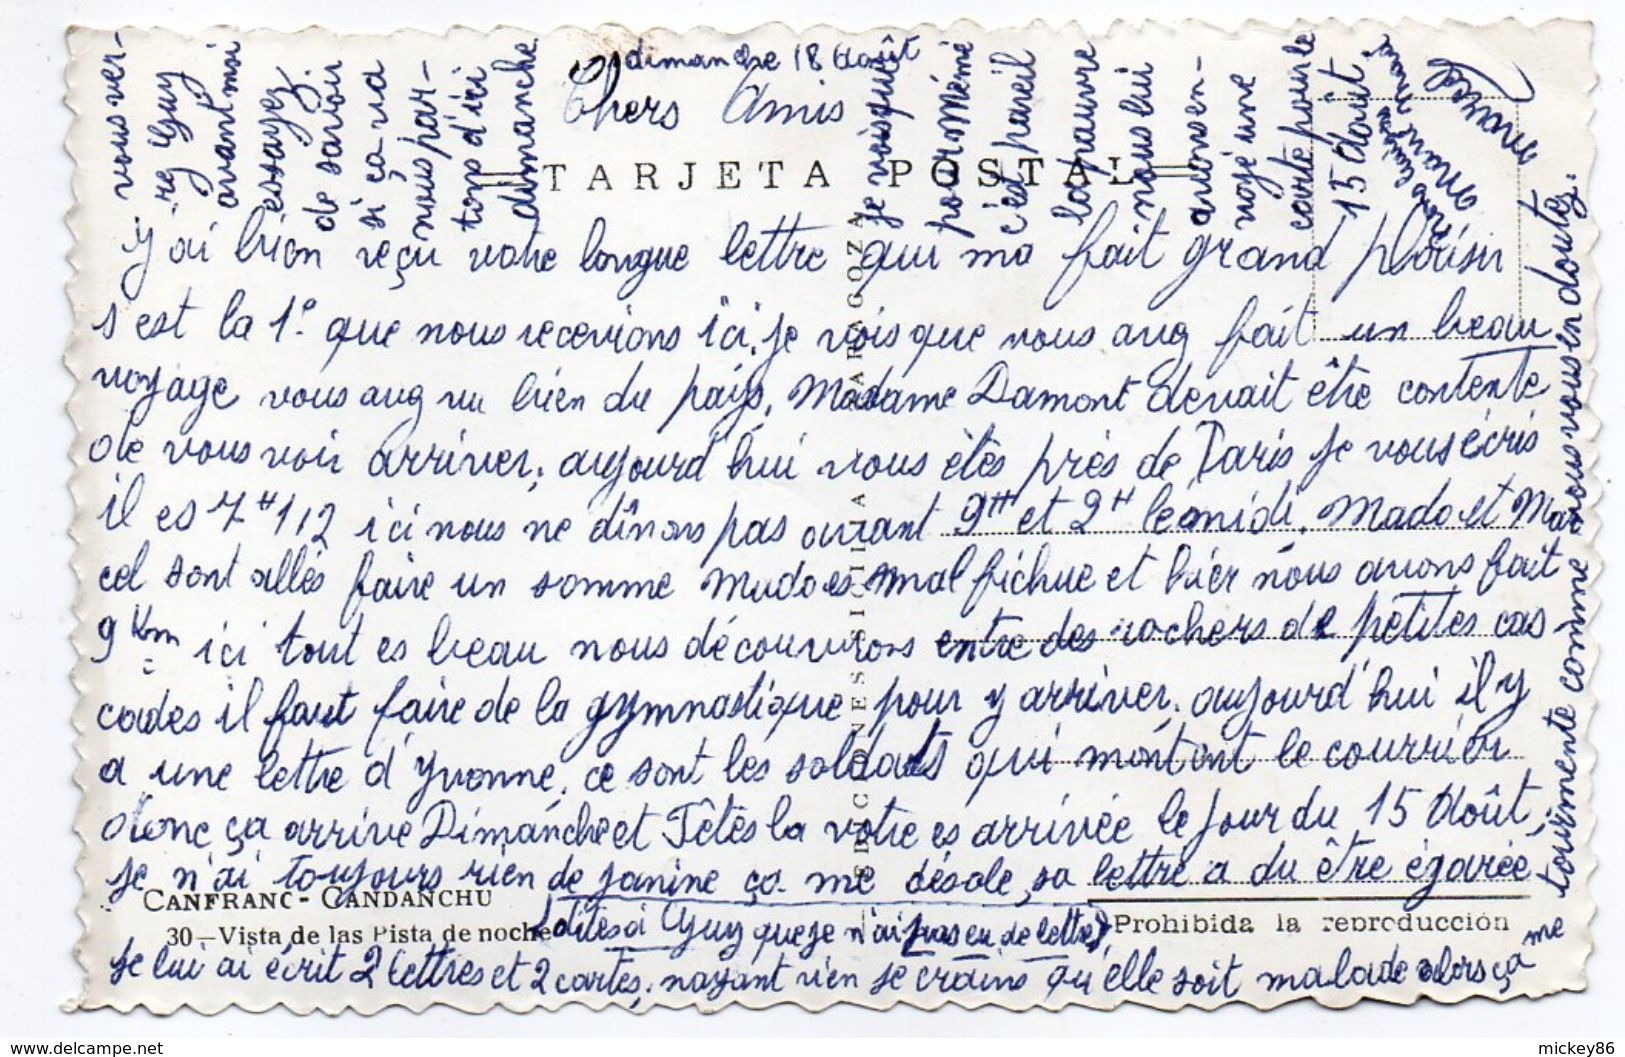 dimanche 18 Août
Chers Amis
TARJETA POSTAL
j'ai bien reçu votre longue lettre qui ma fait grand plaisir
s'est la 1e que nous recevions ici, je vois que vous avez fait un beau
voyage vous avez vu bien du pays, Madame Damont devait être contente
de vous voir arriver, aujourd'hui vous êtes près de Paris je vous écris
il es 7H 1/2 ici nous ne dînons pas avant 9H et 2H le midi. Mado et Mar
cel sont allés faire un somme Mado es mal fichue et hier nous avions fait
9 Km ici tout es beau nous découvrons entre des rochers de petites cas
cades il faut faire de la gymnastique pour y arriver. aujourd'hui il y
a une lettre d'Yvonne, ce sont les soldats qui montent le courrier
donc ça arrive Dimanche et Fêtes la votre es arrivée le jour du 15 Août,
je n'ai toujours rien de Janine ça me désole, sa lettre a du être égarée
CANFRANC - CANDANCHU
30—Vista de las Pista de noche
(dites à Guy que je n'ai pas eu de lettre)
Prohibida la reproducción
je lui ai écrit 2 lettres et 2 cartes, nayant rien je crains qu'elle soit malade alors ça me
tourmente comme vous vous en doutez.
EDICIONES SICILIA
ZARAGOZA
je vois que
pour Mémé
c'est pareil
la pauvre
nous lui
avons en-
voyé une
carte pour le
15 Août
vous ver-
rez Guy
avant moi
essayez
de savoir
si ça va
nous par-
tons d'ici
dimanche
mickey86
www.delcampe.net